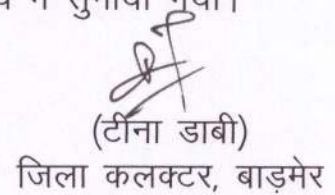 में सुनाया गया।
(टीना डाबी)
जिला कलक्टर, बाड़मेर